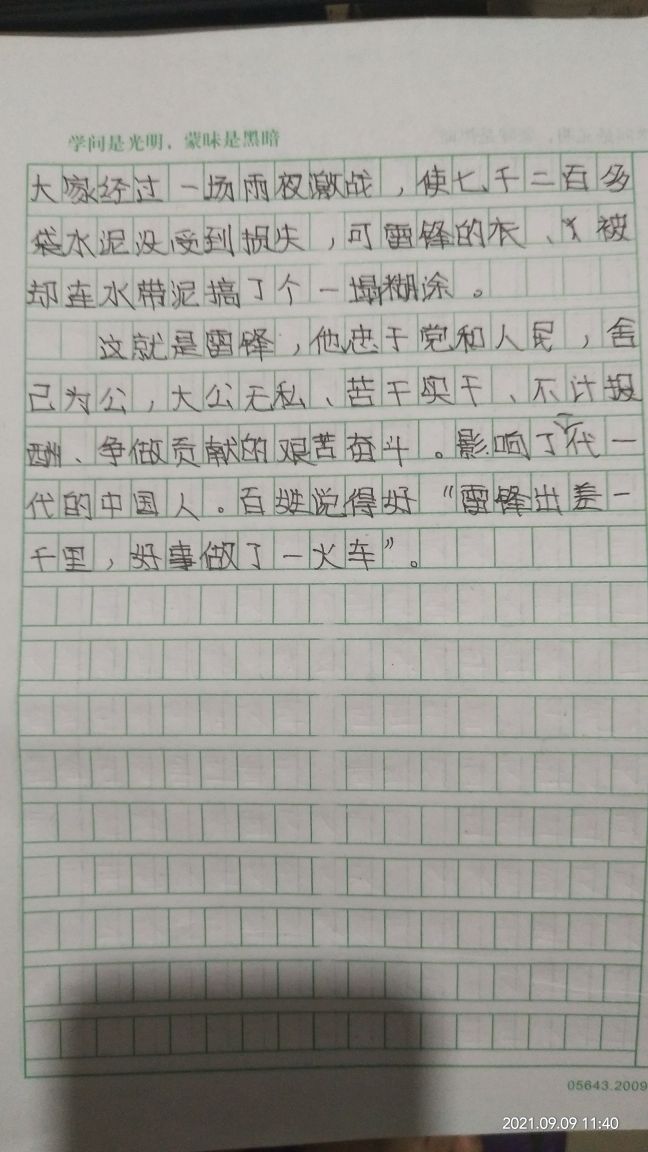 学问是光明，蒙昧是黑暗
大家经过一场雨夜激战，使七千二百多
袋水泥没受到损失，可雷锋的衣、被
却连水带泥搞了个一塌糊涂。
这就是雷锋，他忠于党和人民，舍
己为公，大公无私、苦干实干、不计报
酬、争做贡献的艰苦奋斗。影响了一代一
代的中国人。百姓说得好“雷锋出差一
千里，好事做了一火车”。
05643.2009
2021.09.09 11:40